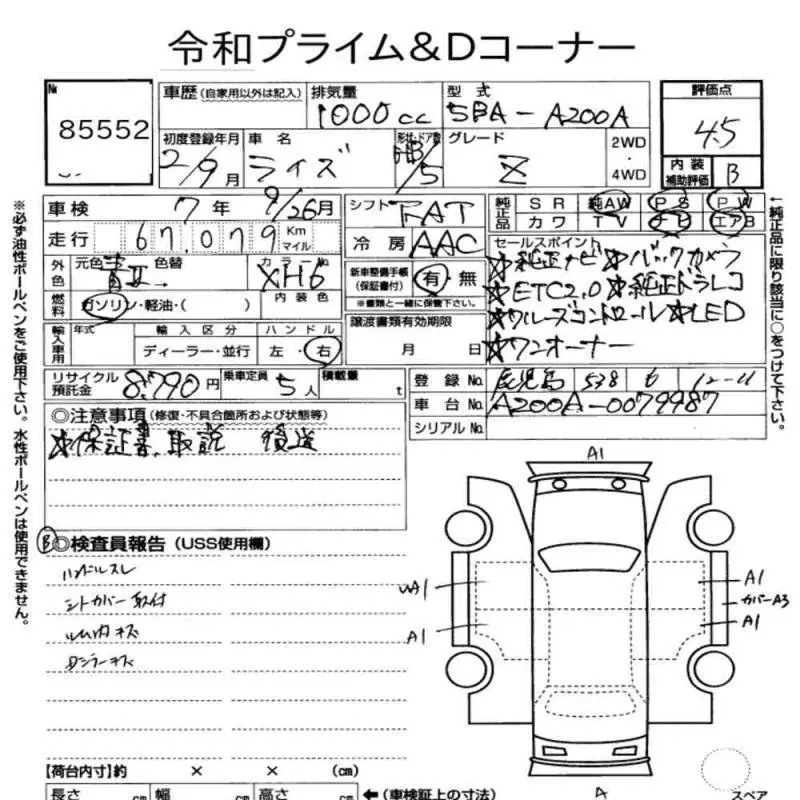 令和プライム&Dコーナー
№ 85552
車歴 (自家用以外は記入)
排気量 1000cc
型式 5BA-A200A
評価点 4.5
内装補助評価 B
初度登録年月 2/9月
車名 ライズ
形状・ドア数 HB/5
グレード Z
2WD・4WD
車検 7年 9/26月
シフト FAT
純正品 SR 純AW PS PW
カワ TV ナビ エアB
走行 67.079 Km マイル
冷房 AAC
セールスポイント
☆純正ナビ ☆バックカメラ
☆ETC2.0 ☆純正ドラレコ
☆クルーズコントロール ☆LED
☆ワンオーナー
外色 元色 青II → 色替
カラーNo XH6
新車整備手帳(保証書付) 有・無
※書類と一緒に保管下さい。
燃料 ガソリン・軽油・( )
内装色
輸入車用 年式 輸入区分 ハンドル
ディーラー・並行 左・右
譲渡書類有効期限
月 日
リサイクル預託金 8.790円
乗車定員 5人
積載量 t
登録No. 鹿児島 538 る 12-11
車台No. A200A-0079987
シリアルNo.
◎注意事項 (修復・不具合個所および状態等)
☆保証書、取説 後送
B ◎検査員報告 (USS使用欄)
ハンドルスレ
シートカバー取付
ルーム内キズ
Dミラーキズ
A1
wA1
A1
A1
カバーA3
A1
A
スペア
【荷台内寸】約 × × (cm)
長さ cm 幅 cm 高さ cm ←(車検証上の寸法)
※必ず油性ボールペンをご使用下さい。水性ボールペンは使用できません。
←純正品に限り該当に○をつけて下さい。